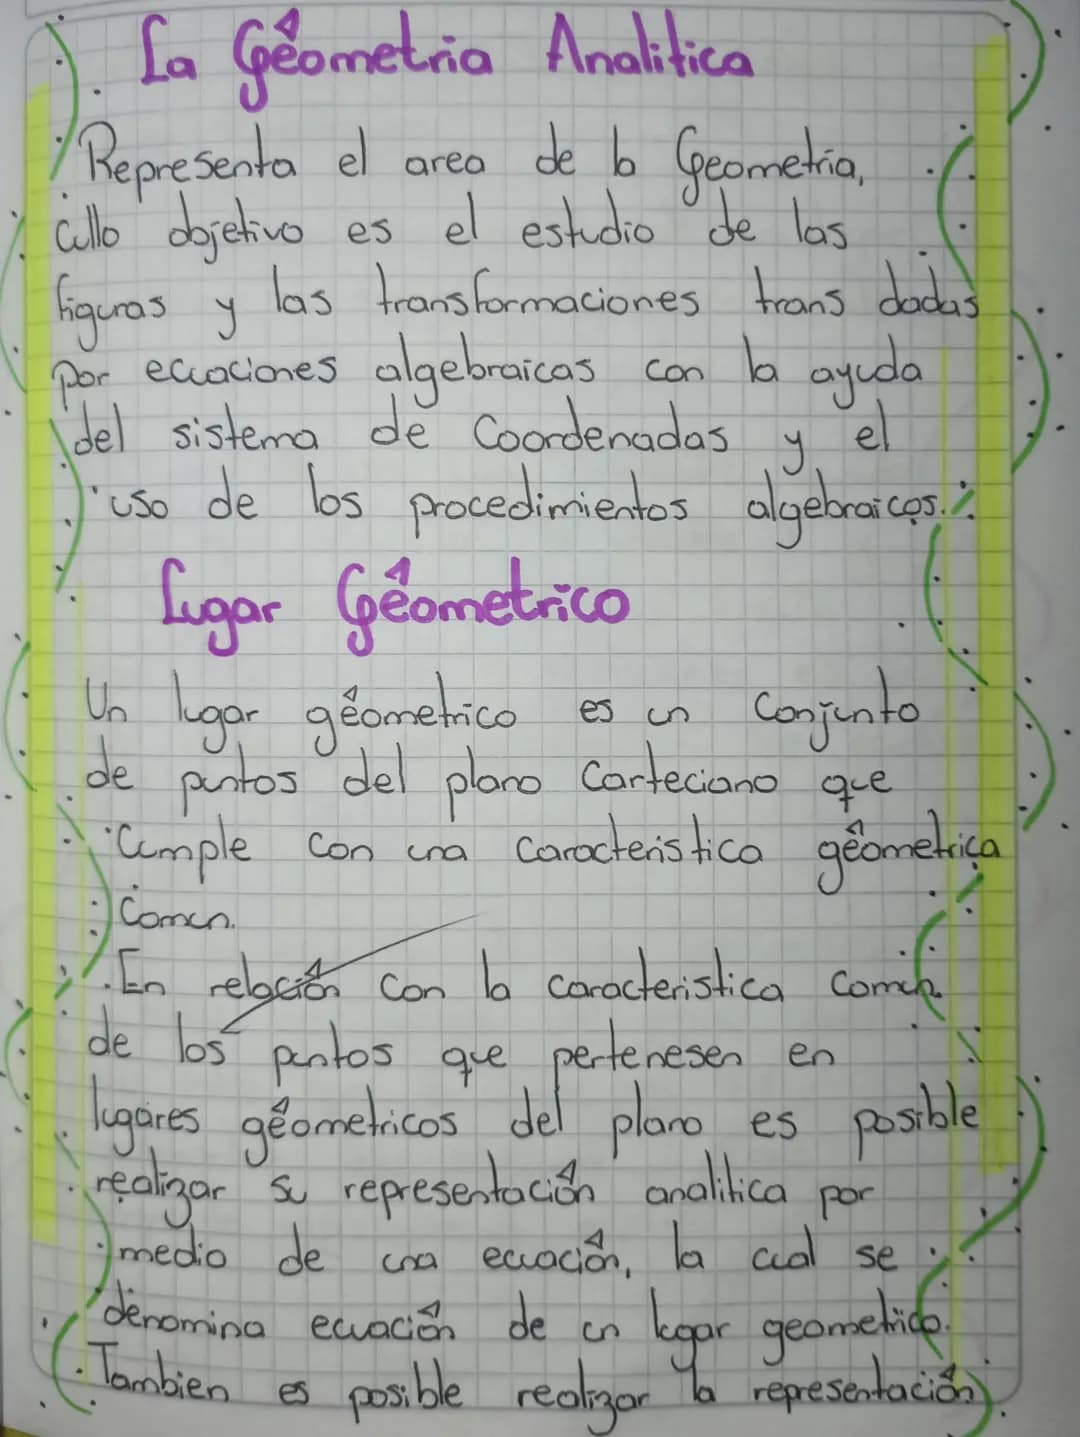 La Geometria Analitica
Representa el area de la Geometria,
cullo dojetivo es el estudio de las
figuras y las transformaciones trans dadas
por ecuaciones algebraicas con la ayuda
del sistema de Coordenadas y el
uso de los procedimientos algebraicos.
Lugar Geometrico
Un lugar geometrico es un Conjunto
de puntos del plano Carteciano que
Cumple con una caracteristica geometrica
Comun.
En relación con la caracteristica comun
de los puntos que pertenesen en
lugares geometricos del plano es posible
realizar su representación analitica por
medio de una ecuación, la cual se
denomina ecuación de un lugar geometrico.
Tambien es posible realizar la representación